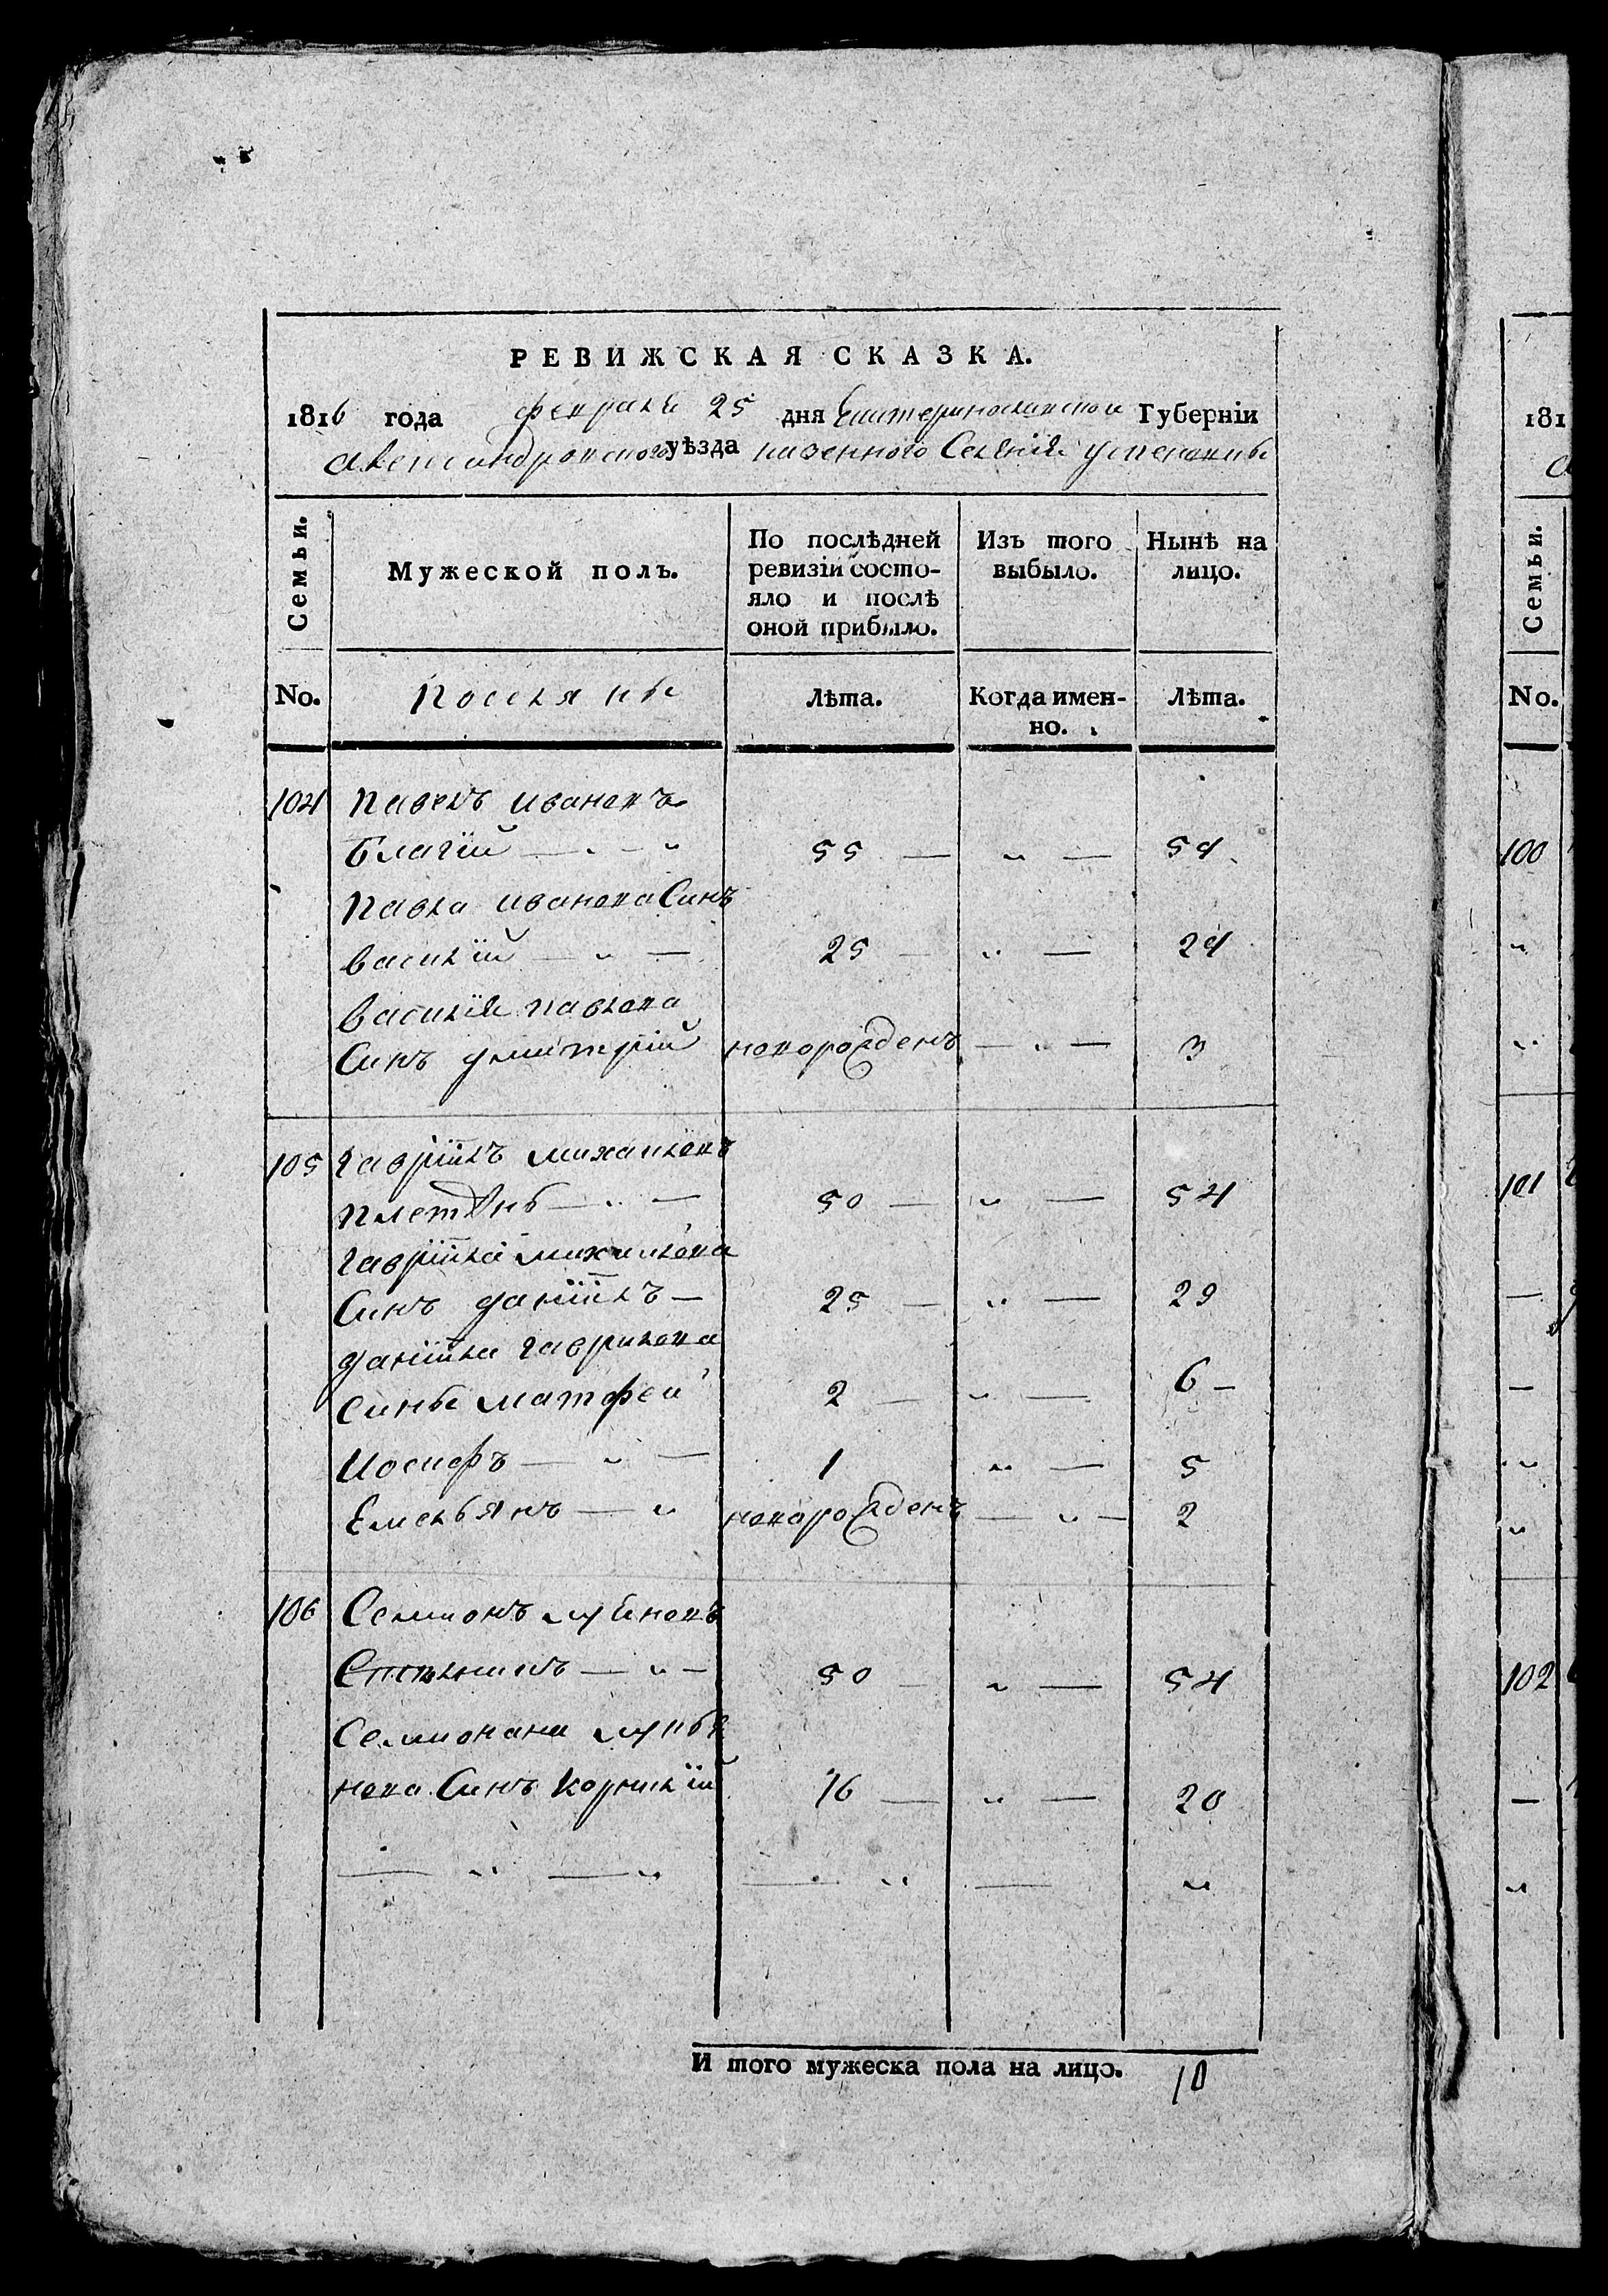 РЕВИЖСКАЯ СКАЗКА.
1816 года февраля 25 дня Екатеринославской Губернїи
Александровского уѣзда казенного Селенія Успеновки
Семьи.
Мужеской полъ.
По послѣдней ревизїи состо-
яло и послѣ
оной прибыло.
Изъ того
выбыло.
Нынѣ на
лицо.
No.
Поселяны
Лѣта.
Когда имен-
но.
Лѣта.
104 Павелъ Ивановъ
Благїй — „ — „ 55 — „ — 54
Павла Иванова Синъ
Василїй — „ — 25 — „ — 24
Василїя Павлова
Синъ Дмитрїй новорожденъ — „ — 3
105 Гаврїилъ Михайловъ
Плетѣнь — „ — 50 — „ — 54
Гаврїила Михайлова
Синъ Данїилъ — 25 — „ — 29
Данїила Гаврилова
Сины Матфей 2 — „ — 6 —
Иосифъ — „ — 1 „ — 5
Емельянъ — „ новорожденъ — „ — 2
106 Семионъ
— „ — 50 — „ — 54
Семионана
нова Синъ Корнилїй 16 — „ — 20
— „ — „ — „ — „
И того мужеска пола на лицо. 10
181
Семьи.
No.
100
„
„
101
—
—
„
„
102
—
„